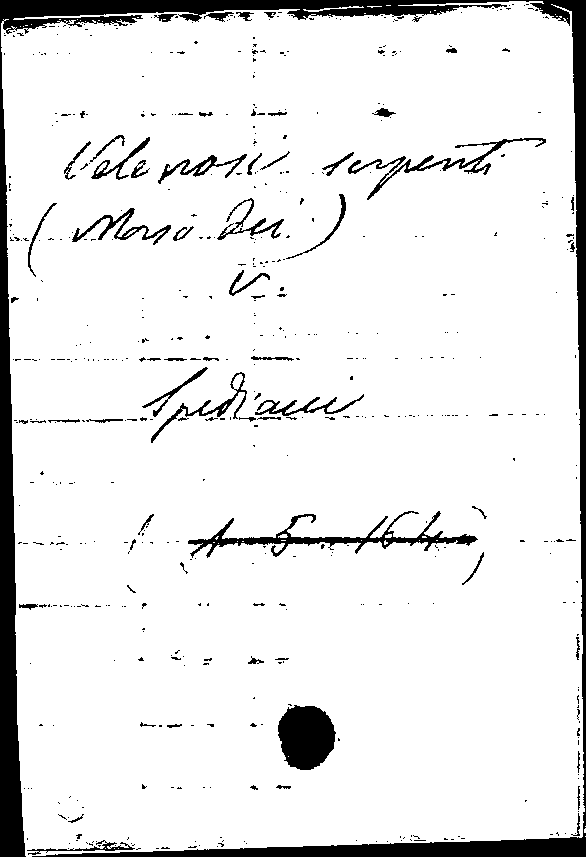 Velenosi serpenti
(Morso dei)
V.
Spediacci
( A 5 164 )